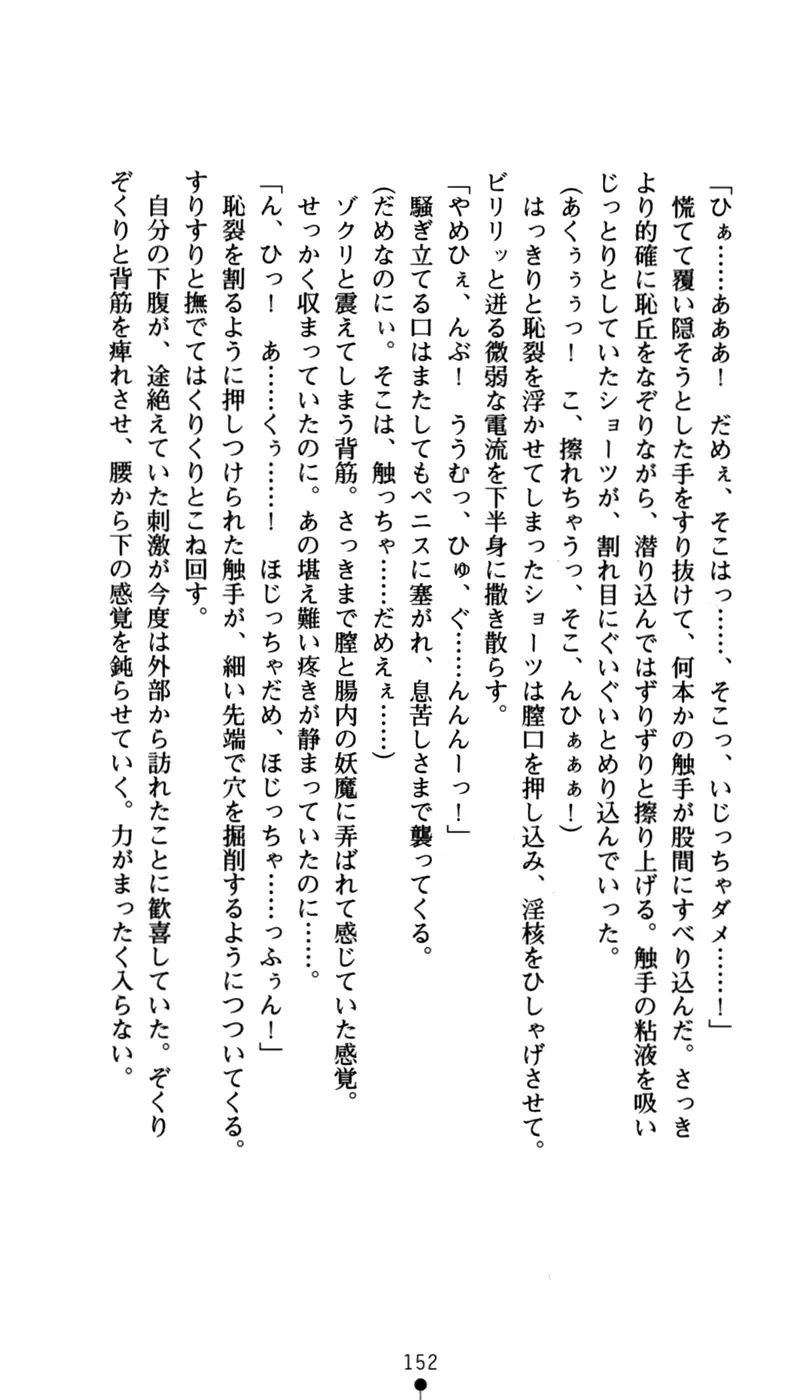 「ひぁ……あああ！　だめぇ、そこはっ……、そこっ、いじっちゃダメ……！」
　慌てて覆い隠そうとした手をすり抜けて、何本かの触手が股間にすべり込んだ。さっき
より的確に恥丘をなぞりながら、潜り込んではずりずりと擦り上げる。触手の粘液を吸い
じっとりとしていたショーツが、割れ目にぐいぐいとめり込んでいった。
（あくぅぅぅっ！　こ、擦れちゃうっ、そこ、んひぁぁぁ！）
　はっきりと恥裂を浮かせてしまったショーツは膣口を押し込み、淫核をひしゃげさせて。
ビリリッと迸る微弱な電流を下半身に撒き散らす。
「やめひぇ、んぶ！　ううむっ、ひゅ、ぐ……んんんーっ！」
　騒ぎ立てる口はまたしてもペニスに塞がれ、息苦しさまで襲ってくる。
（だめなのにぃ。そこは、触っちゃ……だめえぇ……）
　ゾクリと震えてしまう背筋。さっきまで膣と腸内の妖魔に弄ばれて感じていた感覚。
　せっかく収まっていたのに。あの堪え難い疼きが静まっていたのに……。
「ん、ひっ！　あ……くぅ……！　ほじっちゃだめ、ほじっちゃ……っふぅん！」
　恥裂を割るように押しつけられた触手が、細い先端で穴を掘削するようにつついてくる。
すりすりと撫でてはくりくりとこね回す。
　自分の下腹が、途絶えていた刺激が今度は外部から訪れたことに歓喜していた。ぞくり
ぞくりと背筋を痺れさせ、腰から下の感覚を鈍らせていく。力がまったく入らない。
152